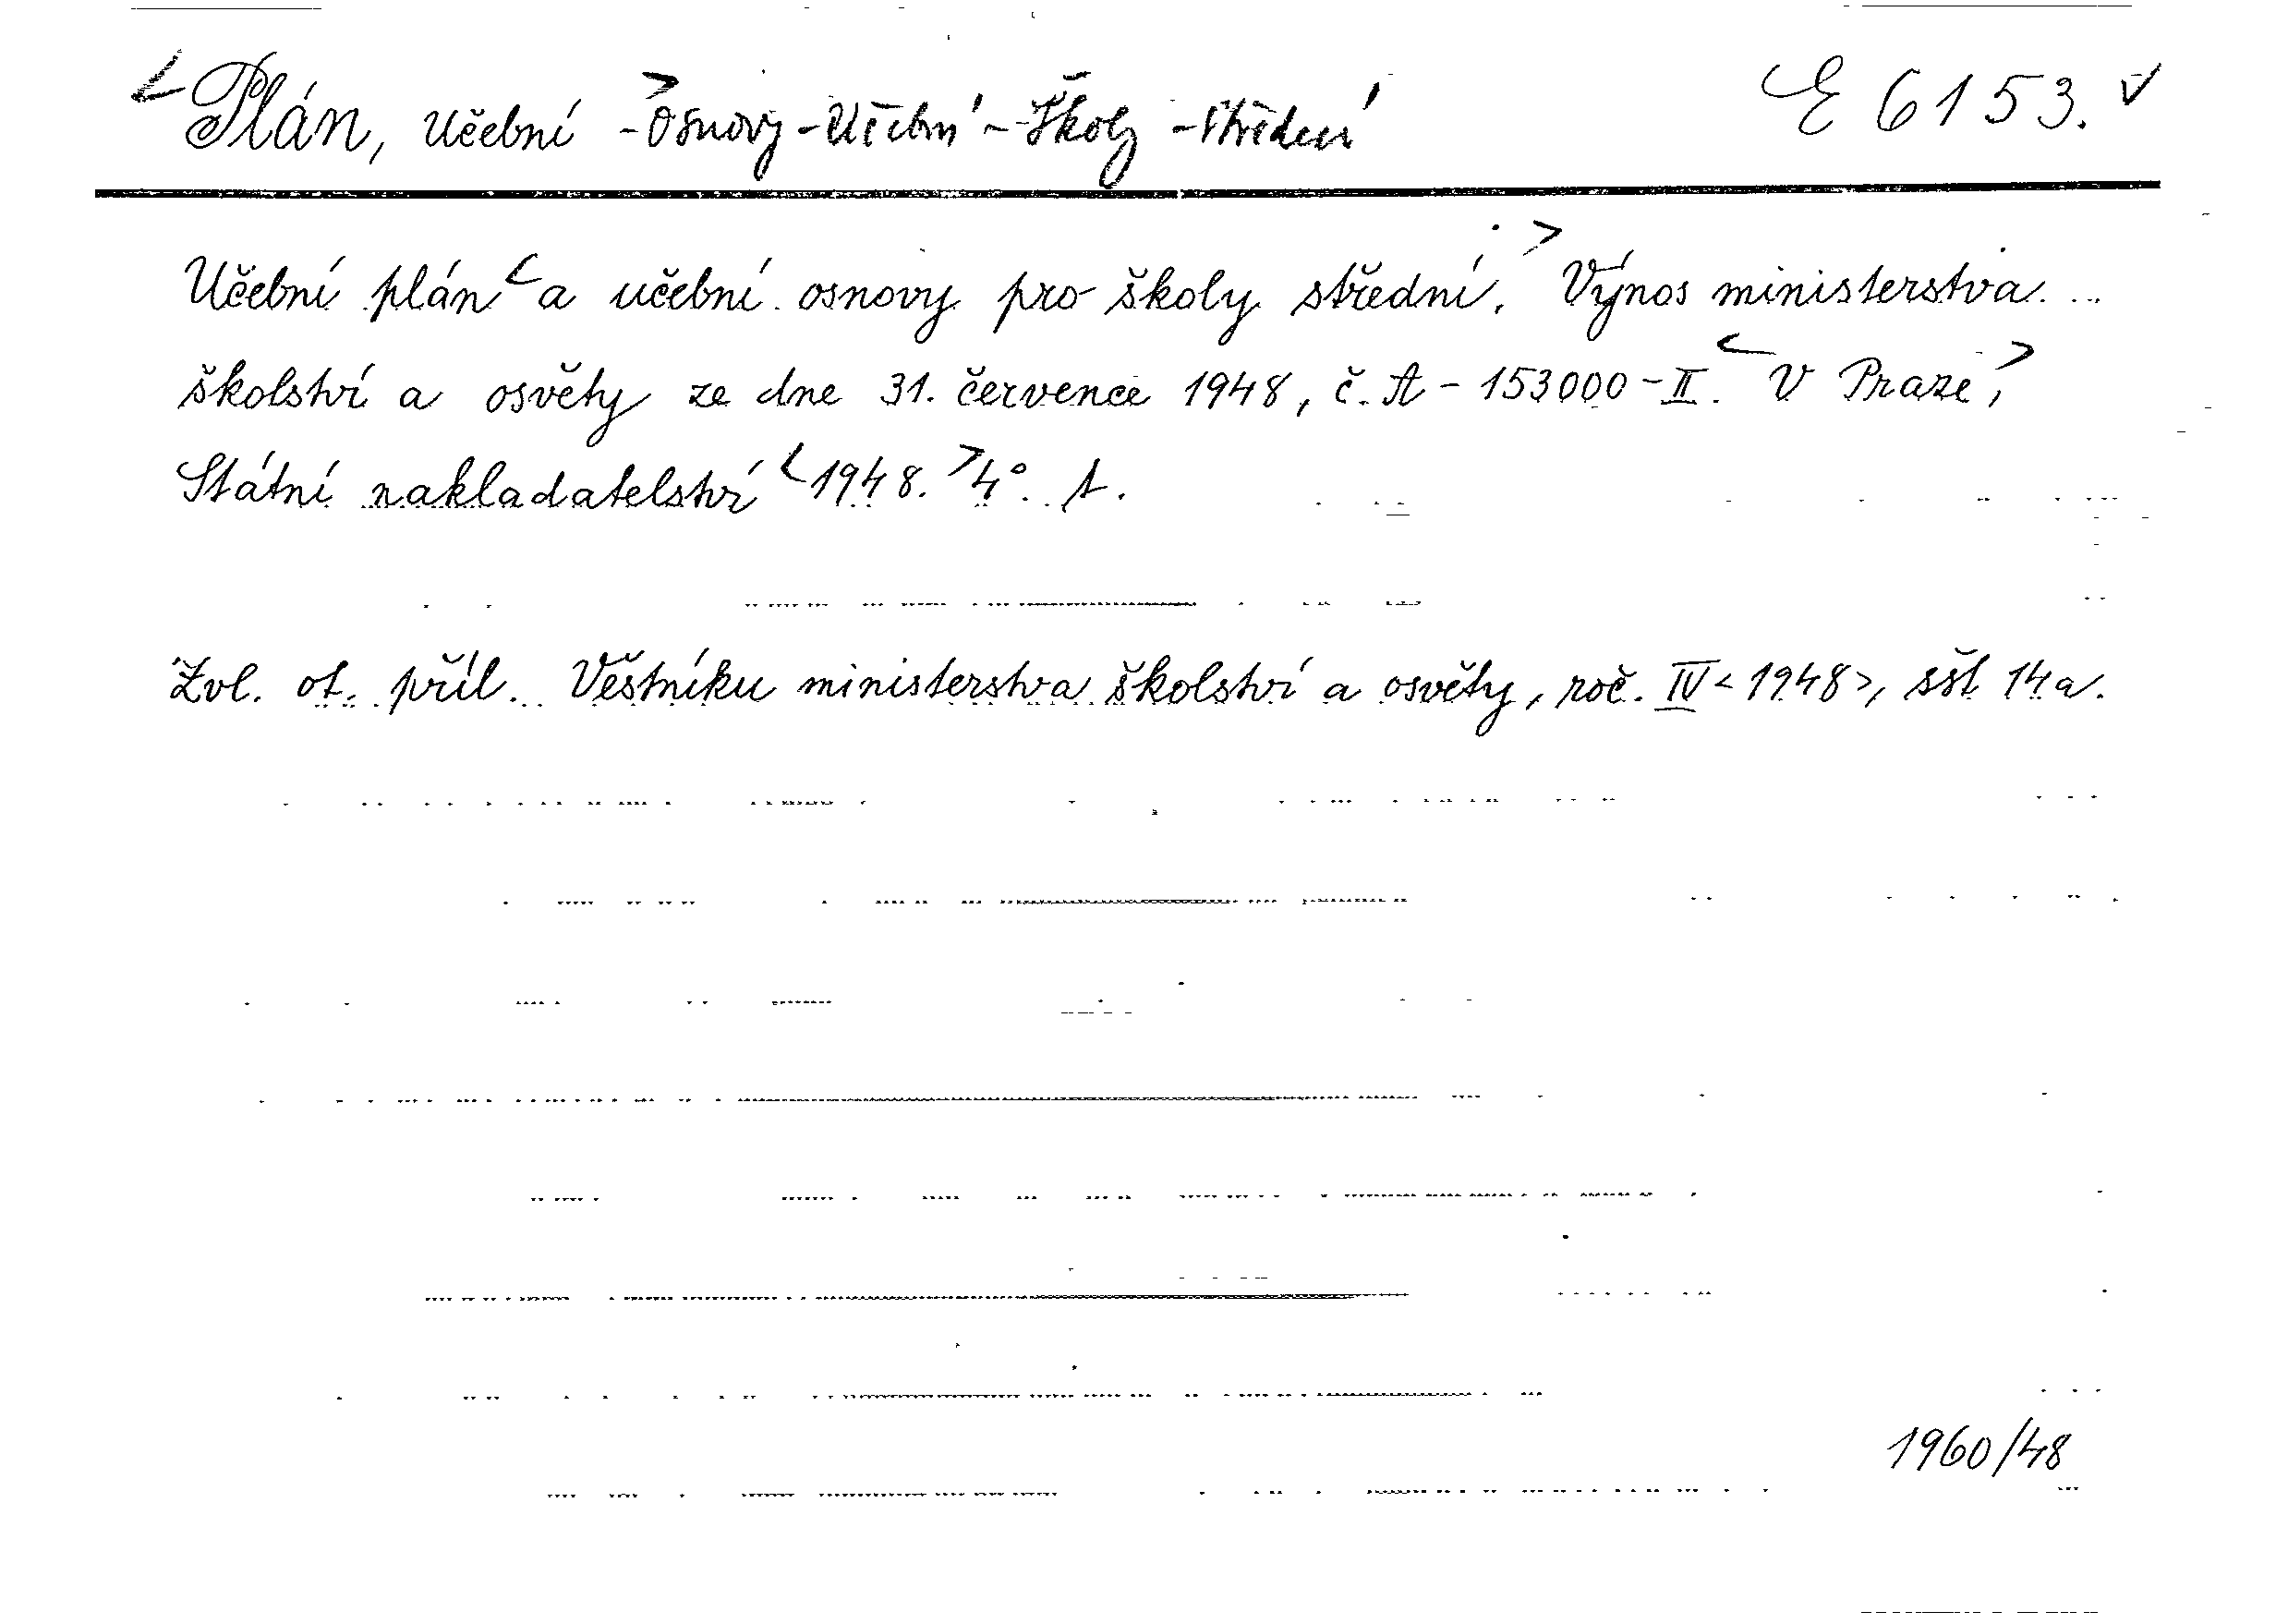 <Plán, učební > -Osnovy -Učební - Školy -střední E 6153. v
Učební plán < a učební osnovy pro školy střední. > Výnos ministerstva
školství a osvěty ze dne 31. července 1948, č. A - 153000 - II. < V Praze, >
Státní nakladatelství < 1948. > 4°. 1.
Zvl. ot. příl. Věstníku ministerstva školství a osvěty, roč. IV <1948>, sšt 14a.
1960/48